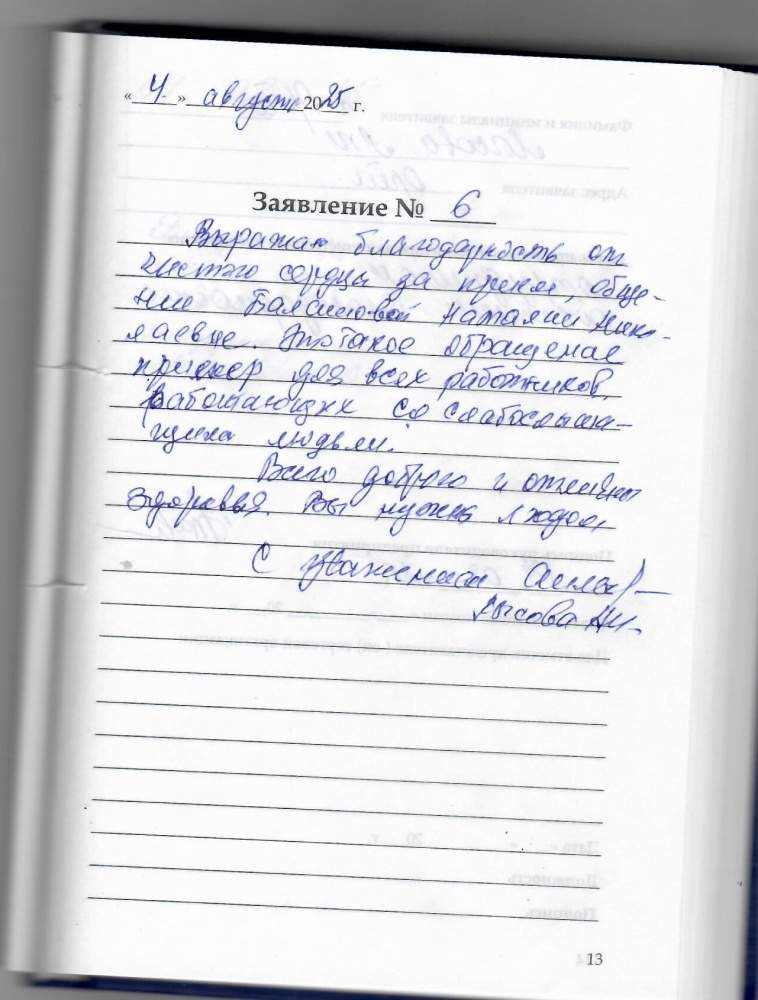 « 4 » август 2025 г.
Заявление № 6
Выражаю благодарность от
чистого сердца за прием, обще-
ние Наталии Нико-
лаевне. Это такое обращение
пример для всех работников,
работающих со слабослыша-
щими людьми.
Всего доброго и отличного
здоровья. Вы нужны людям,
С уважением
Лысова
13